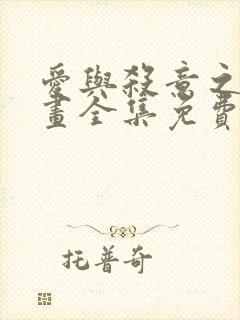 愛與殺意之
畫全集免費
托普奇